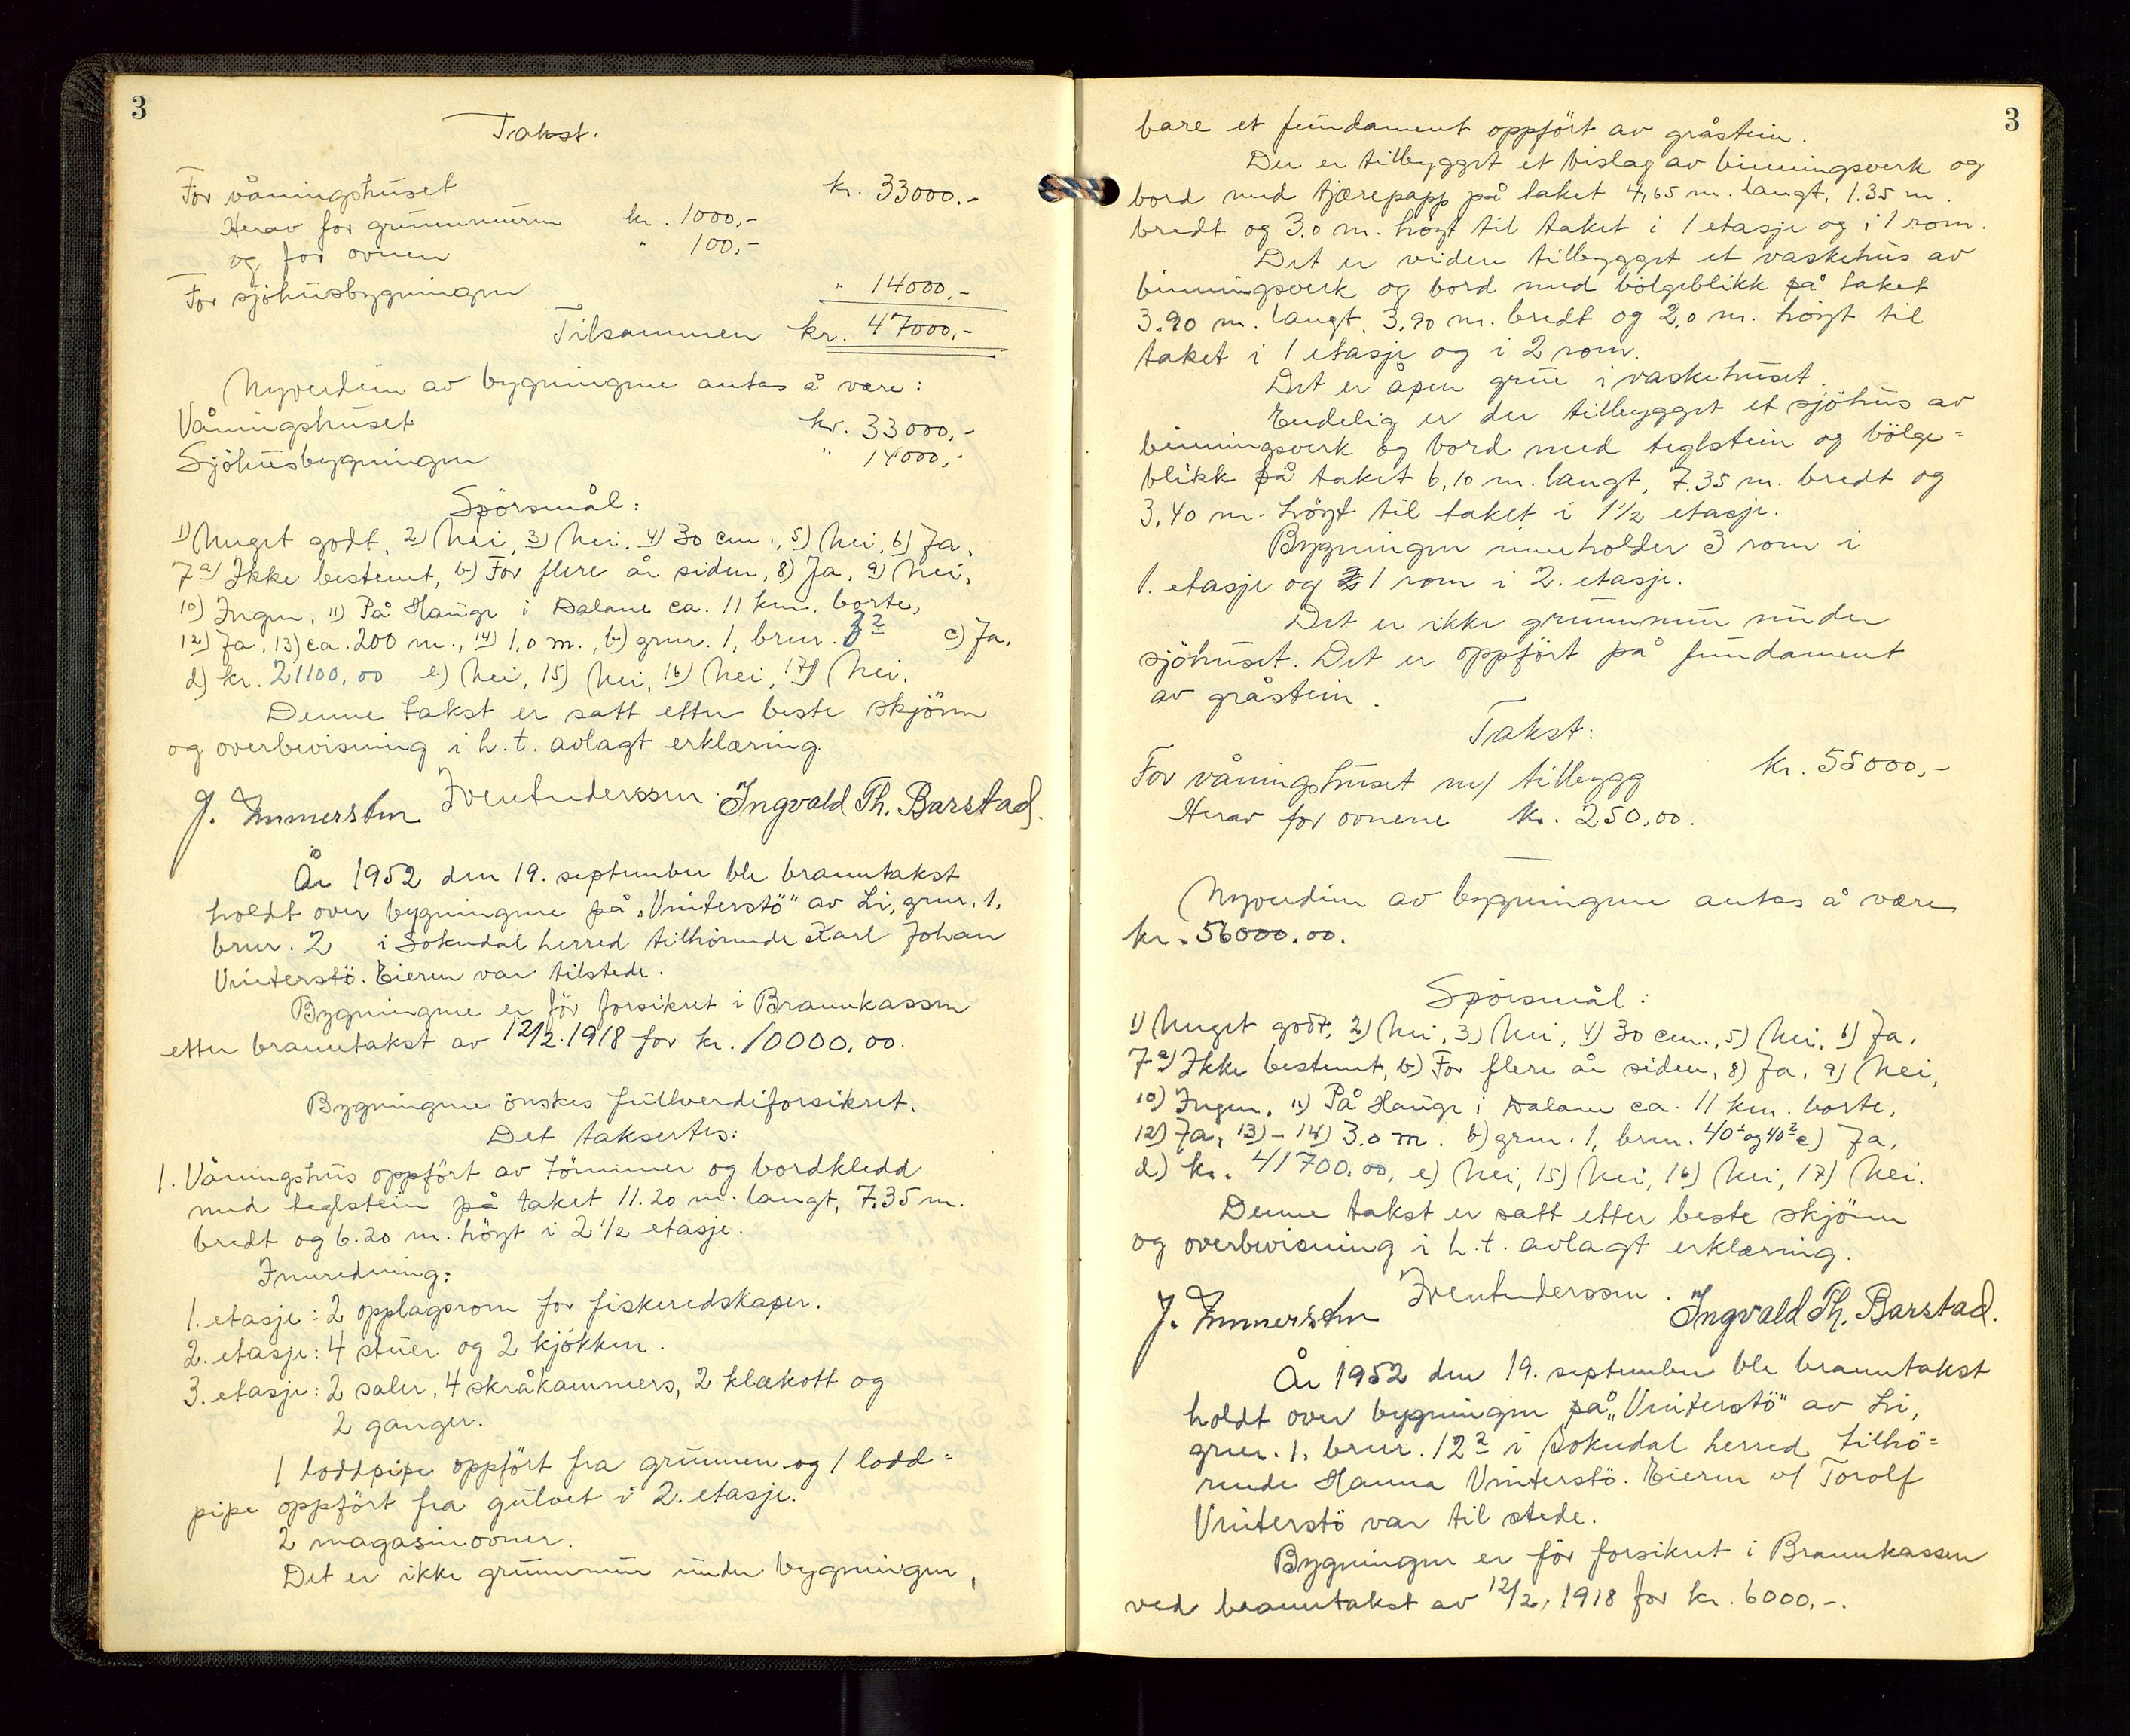 3
Takst.
For våningshuset kr. 33000.-
Herav for grunnmuren kr. 1000,-
og for ovnen " 100,-
For sjöhusbygningen " 14000,-
Tilsammen kr. 47000,-
Nyverdien av bygningene antas å være:
Våningshuset kr. 33000,-
Sjöhusbygningen " 14000,-
Spörsmål:
1) Meget godt, 2) Nei, 3) Nei, 4) 30 cm., 5) Nei, 6) Ja,
7 a) Ikke bestemt, b) For flere år siden, 8) Ja, 9) Nei,
10) Ingen, 11) På Hauge i Dalane ca. 11 km. borte,
12) Ja, 13) ca. 200 m., 14) 1,0 m., b) gnr. 1, bnr. c) Ja,
d) kr. 21100,00 e) Nei, 15) Nei, 16) Nei, 17) Nei.
Denne takst er satt etter beste skjönn
og overbevisning i h.t. avlagt erklæring.
Ingvald Th. Barstad.
År 1952 den 19. september ble branntakst
holdt over bygningene på „Vinterstö" av Li, gnr. 1,
bnr. 2 i Sokndal herred tilhörende Karl Johan
Vinterstö. Eieren var tilstede.
Bygningene er för forsikret i Brannkassen
etter branntakst av 12/2.1918 for kr. 10000,00.
Bygningene önskes fullverdiforsikret.
Det taksertes:
1. Våningshus oppfört av tömmer og bordkledd
med teglstein på taket 11.20 m. langt, 7.35 m.
bredt og 6.20 m. höyt i 2 1/2 etasje.
Innredning:
1. etasje: 2 opplagsrom for fiskeredskaper.
2. etasje: 4 stuer og 2 kjökken.
3. etasje: 2 saler, 4 skråkammers, 2 klækott og
2 ganger.
1 loddpipe oppfört fra grunnen og 1 lodd=
pipe oppfört fra gulvet i 2. etasje.
2 magasinovner.
Det er ikke grunnmur under bygningen,
3
bare et fundament oppfört av gråstein.
Der er tilbygget et bislag av binningsverk og
bord med tjærepapp på taket 4,65 m. langt, 1.35 m.
bredt og 3.0 m. höyt til taket i 1 etasje og i 1 rom.
Det er videre tilbygget et vaskehus av
binningsverk og bord med bölgeblikk på taket
3.90 m. langt, 3,90 m. bredt og 2,0 m. höyt til
taket i 1 etasje og i 2 rom.
Det er åpen grue i vaskehuset.
Endelig er der tilbygget et sjöhus av
binningsverk og bord med teglstein og bölge=
blikk på taket 6,10 m. langt, 7.35 m. bredt og
3,40 m. höyt til taket i 1 1/2 etasje.
Bygningen inneholder 3 rom i
1. etasje og 1 rom i 2. etasje.
Det er ikke grunnmur under
sjöhuset. Det er oppfört på fundament
av gråstein.
Takst:
For våningshuset m/ tilbygg kr. 55000,-
Herav for ovnene kr. 250,00.
Nyverdien av bygningene antas å være
kr. 56000,00.
Spörsmål:
1) Meget godt, 2) Nei, 3) Nei, 4) 30 cm., 5) Nei, 6) Ja,
7 a) Ikke bestemt, b) For flere år siden, 8) Ja, 9) Nei,
10) Ingen, 11) På Hauge i Dalane ca. 11 km. borte,
12) Ja, 13) - 14) 3.0 m. b) gnr. 1, bnr. 40 og 40 2 c) Ja,
d) kr. 41700,00, e) Nei, 15) Nei, 16) Nei, 17) Nei.
Denne takst er satt etter beste skjönn
og overbevisning i h.t. avlagt erklæring.
Ingvald Th. Barstad.
År 1952 den 19. september ble branntakst
holdt over bygningen på „Vinterstö" av Li,
gnr. 1, bnr. 12 2 i Sokndal herred tilhö=
rende Hanna Vinterstö. Eieren v/ Torolf
Vinterstö var til stede.
Bygningen er för forsikret i Brannkassen
ved branntakst av 12/2, 1918 for kr. 6000,-.